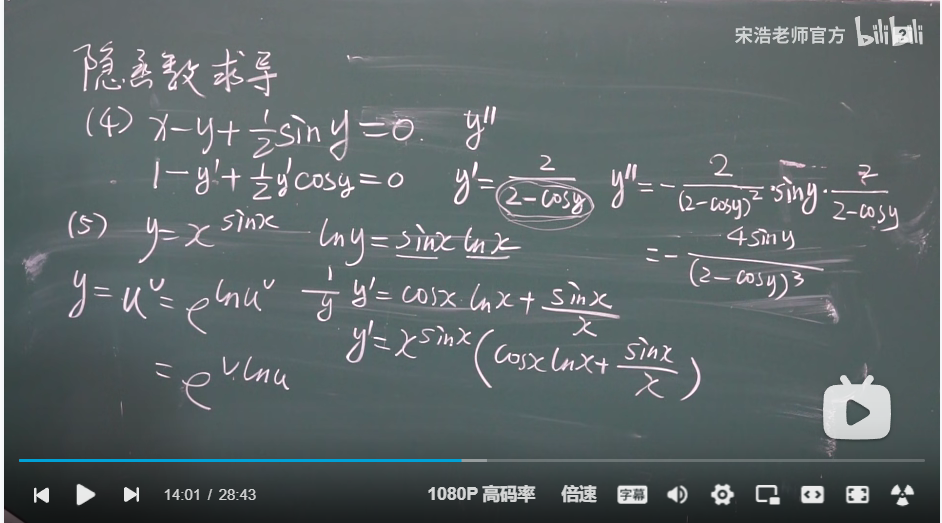 宋浩老师官方 bilibili
隐函数求导
(4) x-y+½siny=0. y''
1-y'+½y'cosy=0 y'=2/(2-cosy) y''=-2/(2-cosy)²·siny·2/(2-cosy)
=-4siny/(2-cosy)³
(5) y=x^sinx lny=sinx lnx
y=u^v=e^lnu^v 1/y y'=cosx·lnx+sinx/x
=e^v·lnu y'=x^sinx(cosxlnx+sinx/x)
14:01 / 28:43 1080P 高码率 倍速 字幕